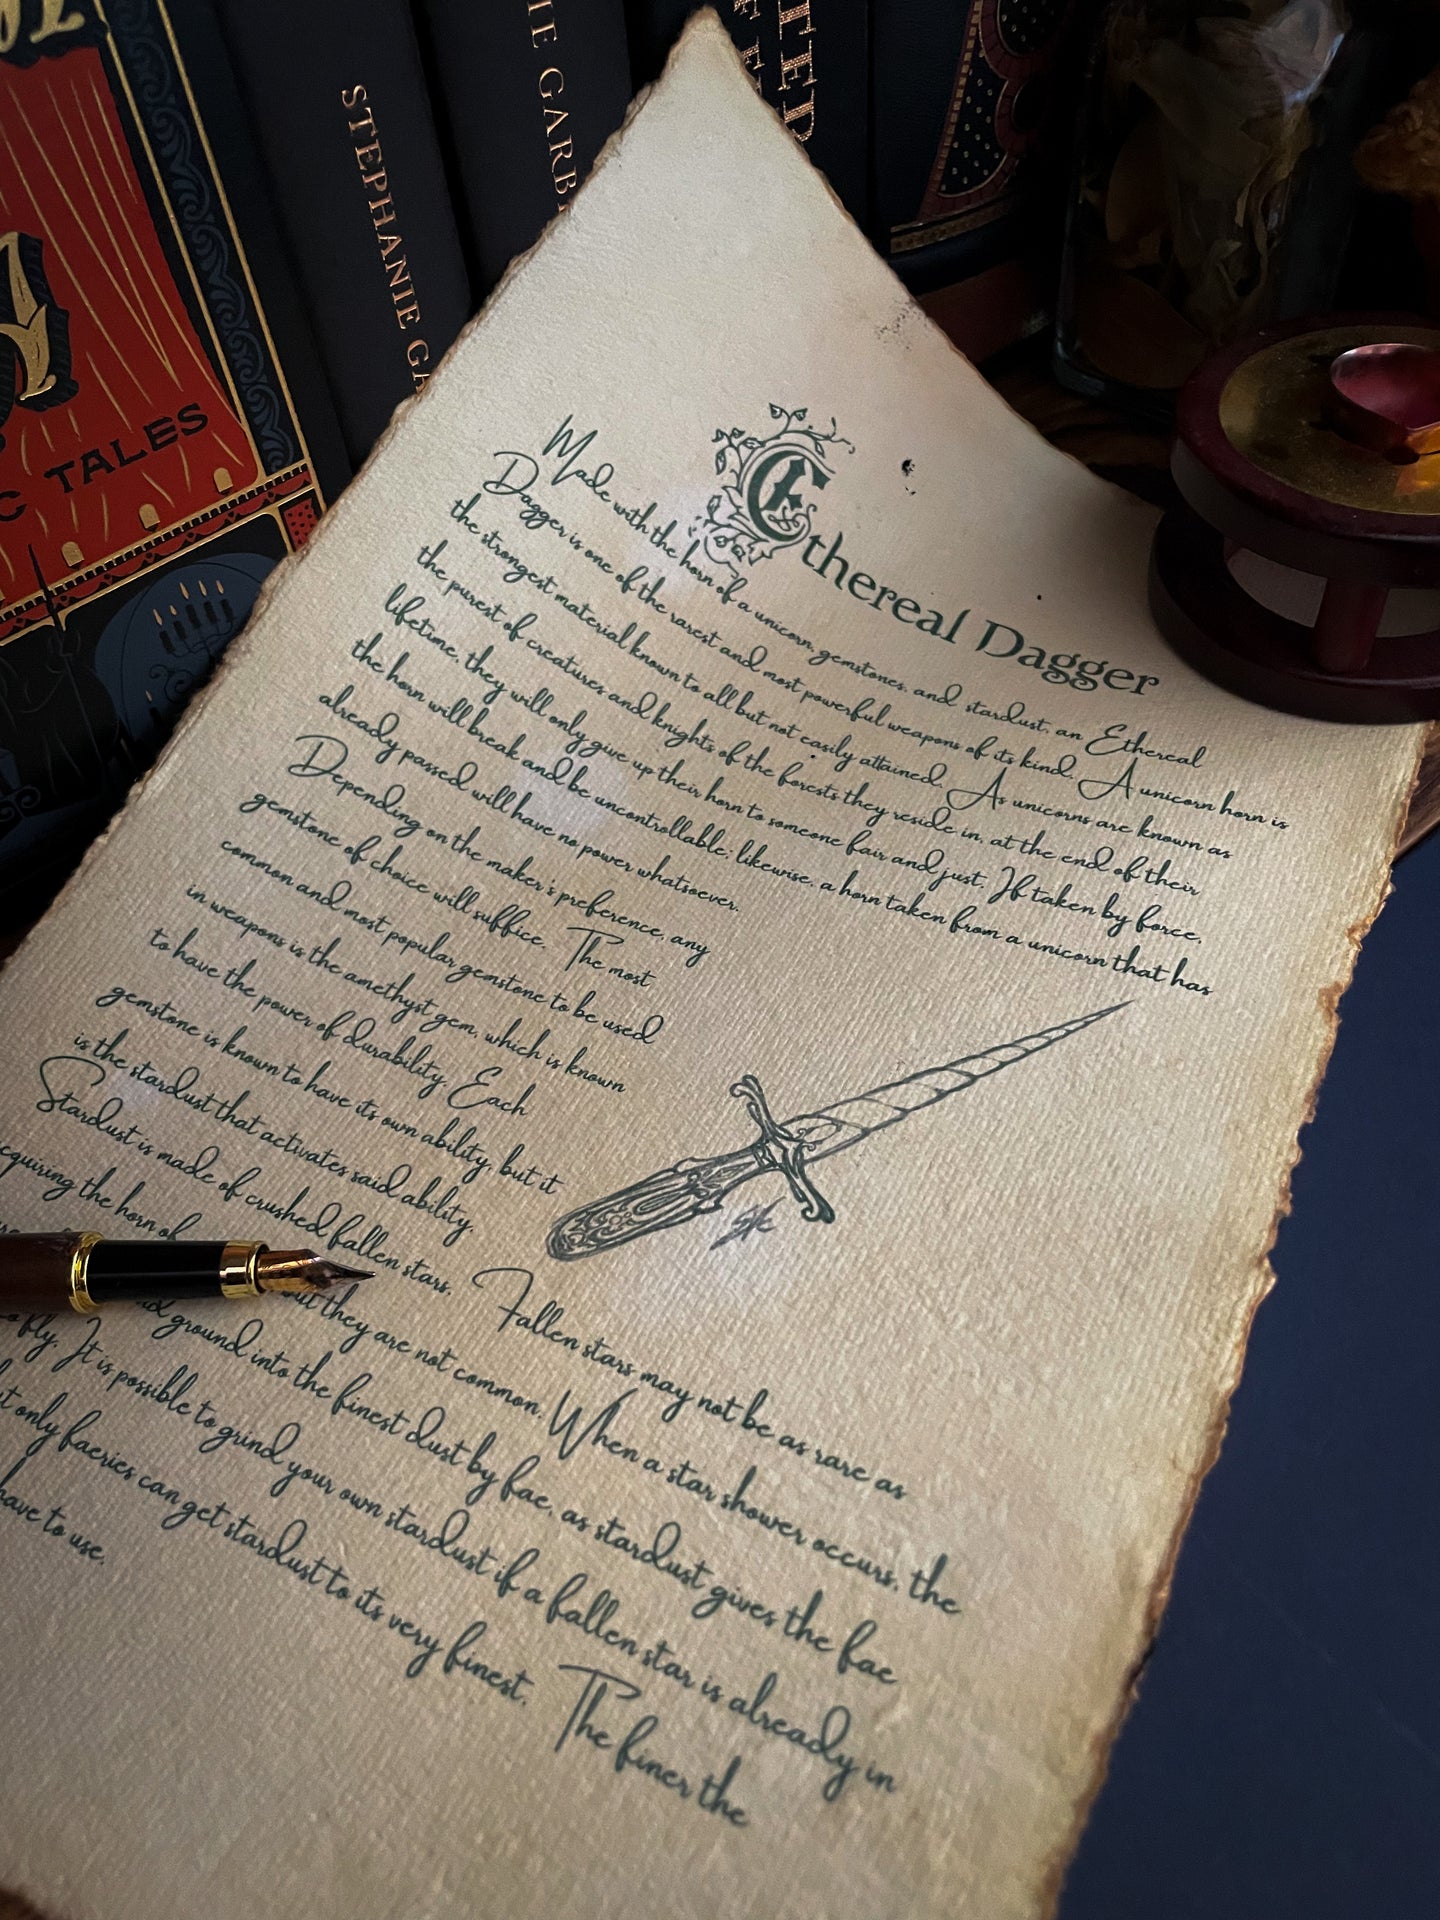 STEPHANIE GA
IE GARB
TALES
Ethereal Dagger
Made with the horn of a unicorn, gemstones, and stardust, an Ethereal
Dagger is one of the rarest and most powerful weapons of its kind. A unicorn horn is
the strongest material known to all but not easily attained. As unicorns are known as
the purest of creatures and knights of the forests they reside in, at the end of their
lifetime, they will only give up their horn to someone fair and just. If taken by force,
the horn will break and be uncontrollable; likewise, a horn taken from a unicorn that has
already passed will have no power whatsoever.
Depending on the maker's preference, any
gemstone of choice will suffice. The most
common and most popular gemstone to be used
in weapons is the amethyst gem, which is known
to have the power of durability. Each
gemstone is known to have its own ability, but it
is the stardust that activates said ability.
Stardust is made of crushed fallen stars. Fallen stars may not be as rare as
cquiring the horn of but they are not common. When a star shower occurs, the
ground into the finest dust by fae, as stardust gives the fae
to fly. It is possible to grind your own stardust if a fallen star is already in
t only faeries can get stardust to its very finest. The finer the
have to use.